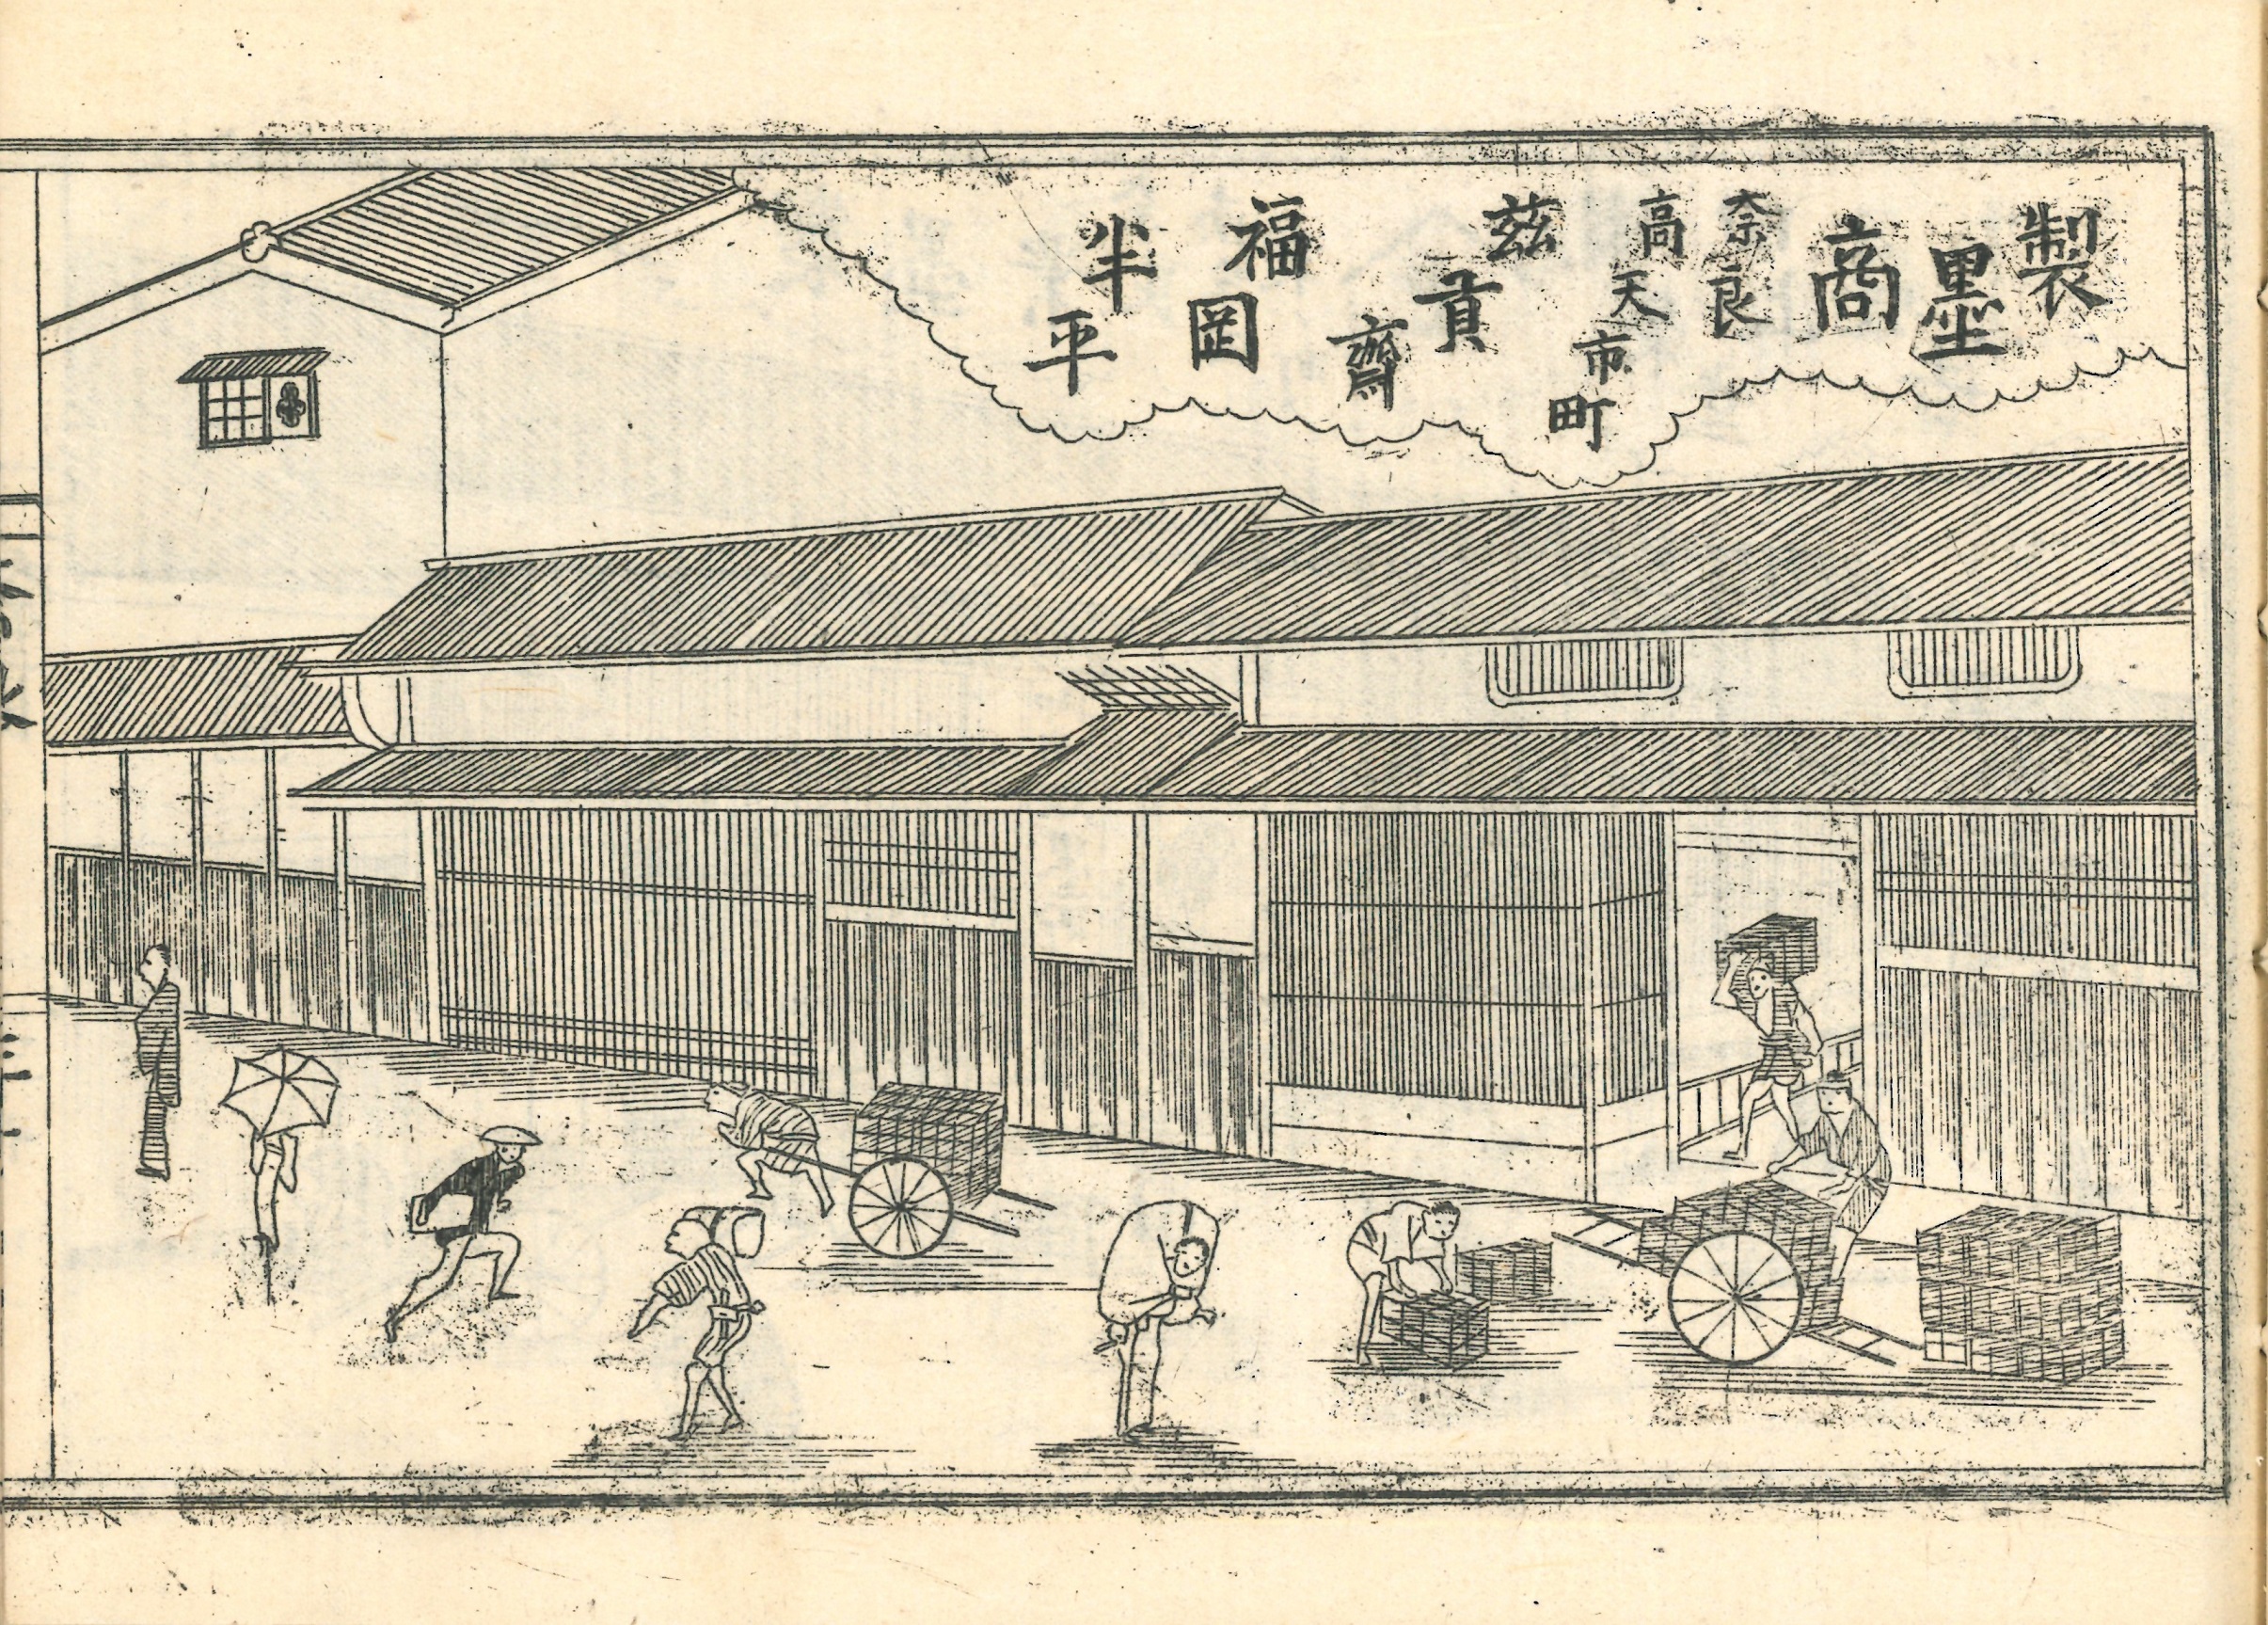 製墨商
奈良
高天市町
茲貢齋
福岡
半平